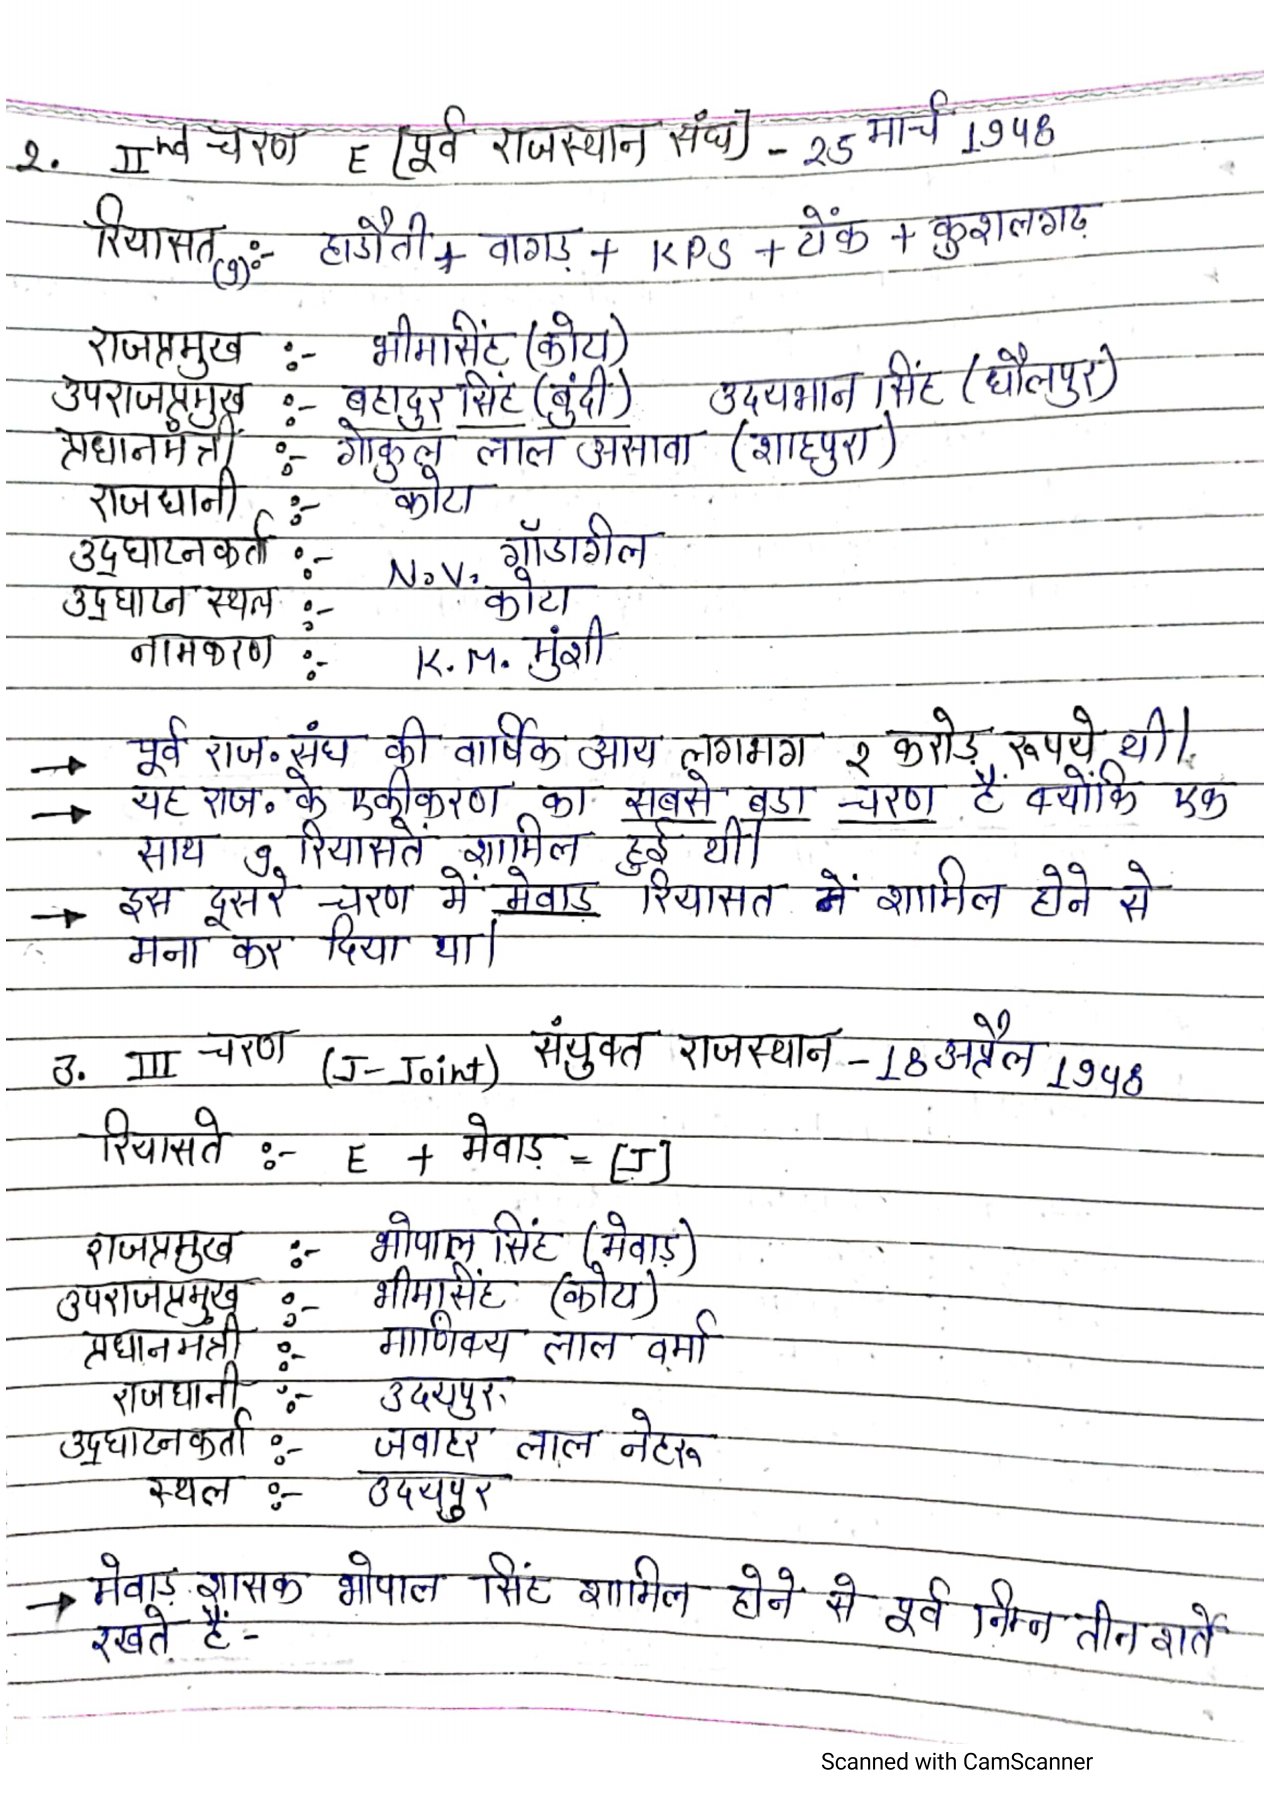 2. IInd चरण E [पूर्व राजस्थान संघ] - 25 मार्च 1948
रियासत(9):- हाडौती + वागड़ + KPS + टोंक + कुशलगढ़
राजप्रमुख :- भीमसिंह (कोटा)
उपराजप्रमुख :- बहादुर सिंह (बुंदी) उदयभान सिंह (धौलपुर)
प्रधानमंत्री :- गोकुल लाल असावा (शाहपुरा)
राजधानी :- कोटा
उद्घाटनकर्ता :- N.V. गॉडागील
उद्घाटन स्थल :- कोटा
नामकरण :- K.M. मुंशी
→ पूर्व राज. संघ की वार्षिक आय लगभग 2 करोड़ रूपये थी।
→ यह राज. के एकीकरण का सबसे बडा चरण है क्योंकि एक
साथ 9 रियासतें शामिल हुई थी।
→ इस दूसरे चरण में मेवाड़ रियासत ने शामिल होने से
मना कर दिया था।
3. III चरण (J-Joint) संयुक्त राजस्थान - 18 अप्रैल 1948
रियासते :- E + मेवाड़ = [J]
राजप्रमुख :- भोपाल सिंह (मेवाड़)
उपराजप्रमुख :- भीमसिंह (कोटा)
प्रधानमंत्री :- माणिक्य लाल वर्मा
राजधानी :- उदयपुर
उद्घाटनकर्ता :- जवाहर लाल नेहरू
स्थल :- उदयपुर
→ मेवाड़ शासक भोपाल सिंह शामिल होने से पूर्व निम्न तीन शर्ते
रखते हैं -
Scanned with CamScanner